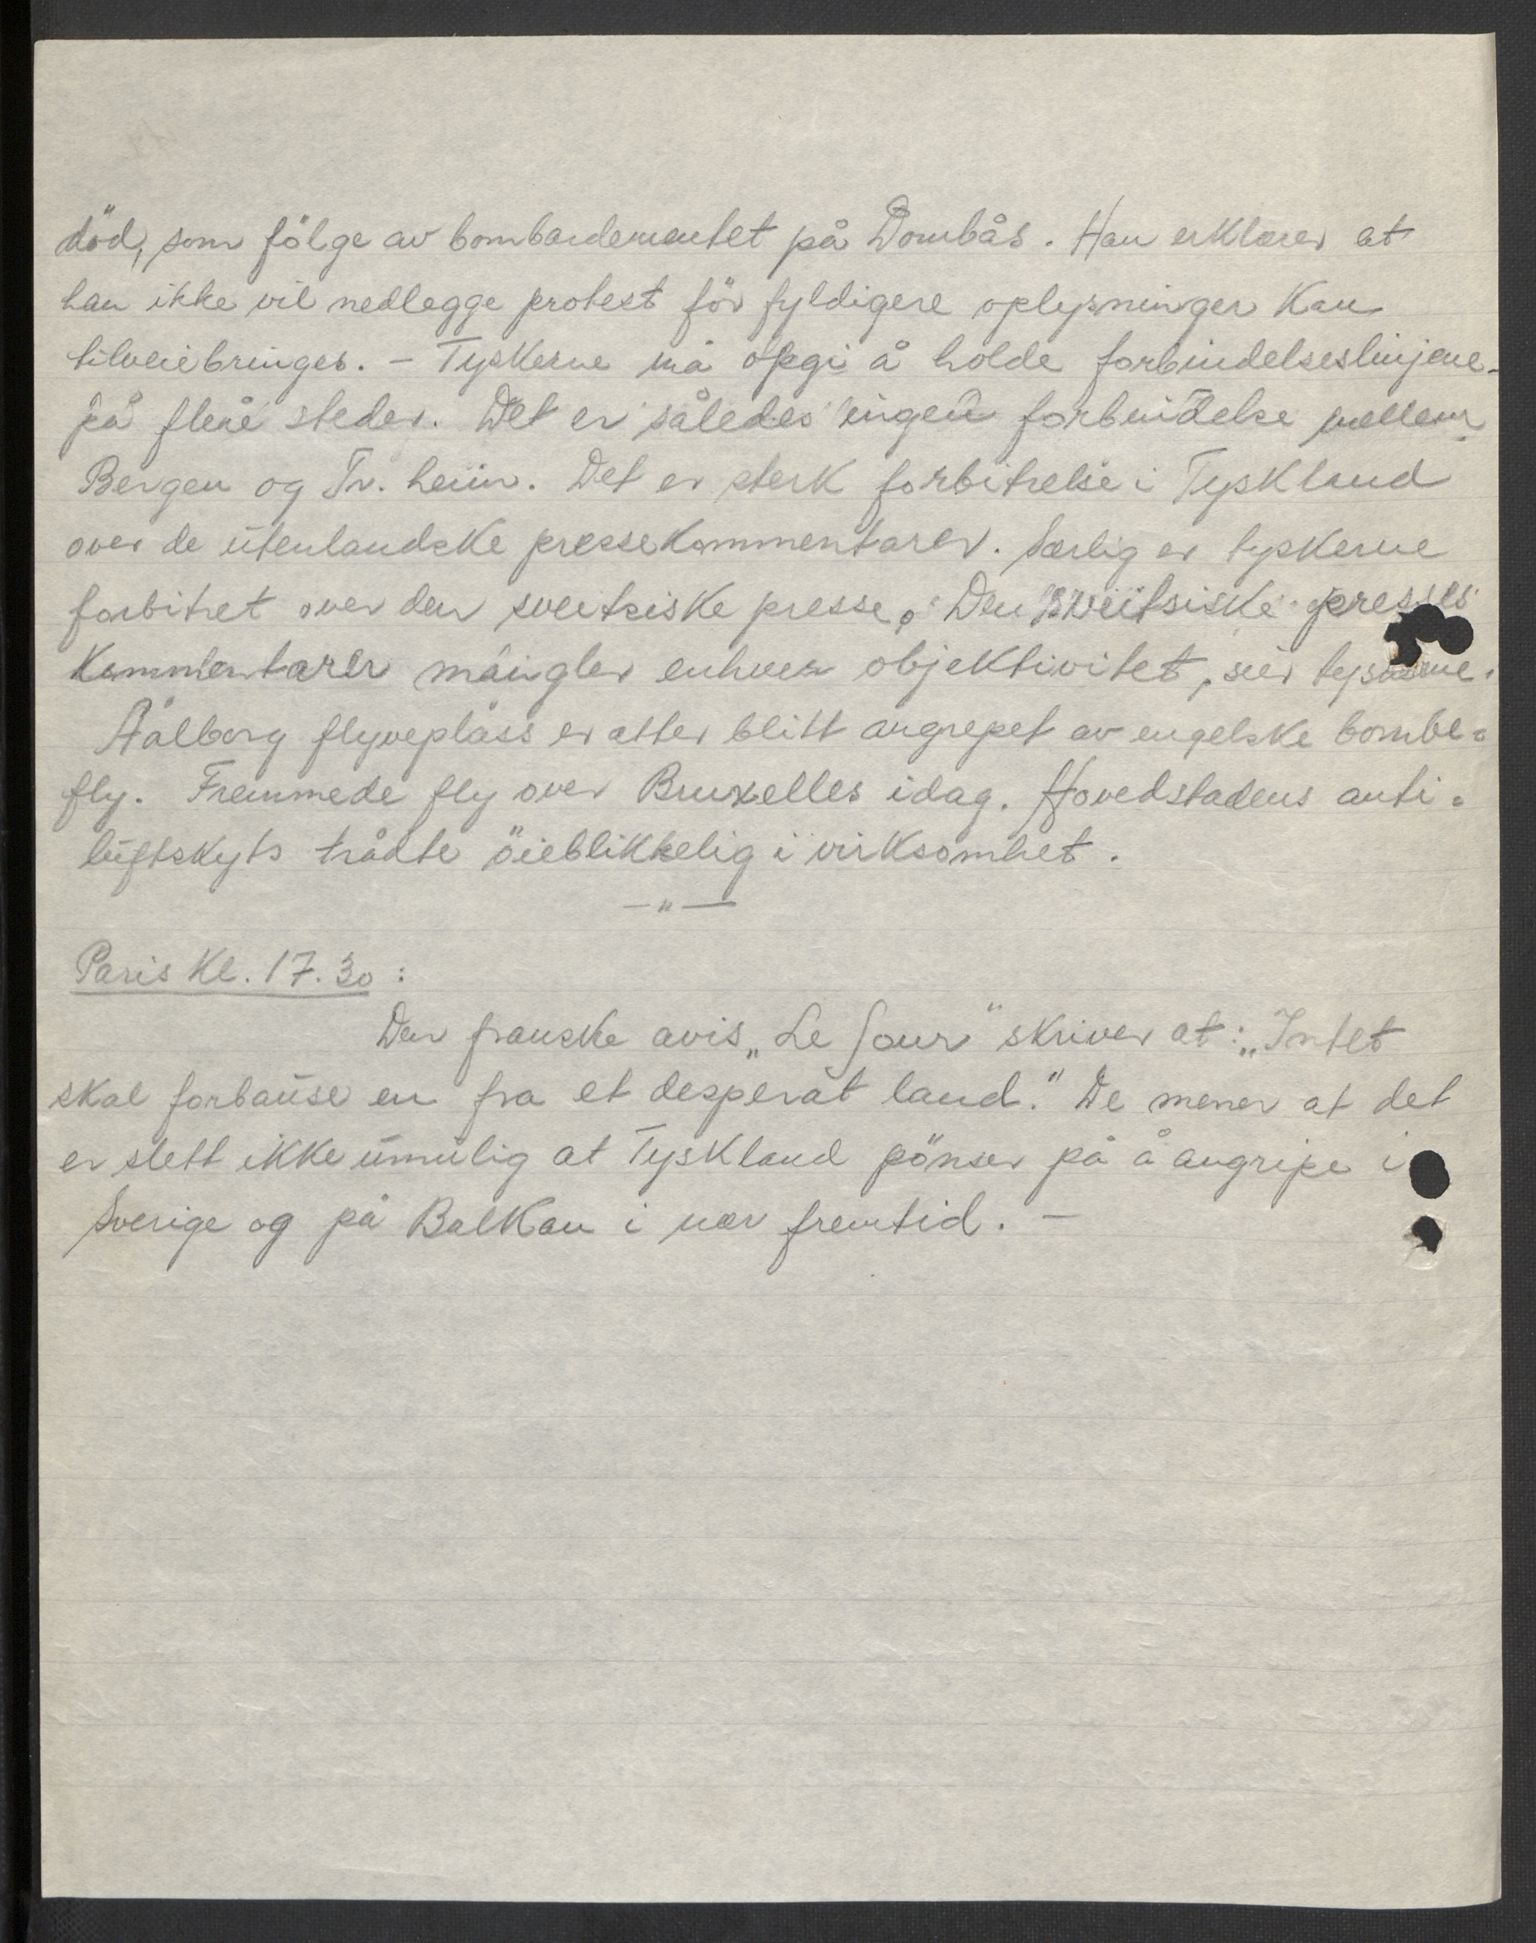 död, som fölge av bombardementet på Dombås. Han erklærer at
han ikke vil nedlegge protest för fyldigere oplysninger kan
tilveiebringes. - Tyskerne må opgi å holde forbindelseslinjene
på flere steder. Det er således ingen forbindelse mellem
Bergen og Tr.heim. Det er sterk forbitrelse i Tyskland
over de utenlandske pressekommentarer. Særlig er tyskerne
forbitret over den sveitsiske presse. "Den sveitsiske presses
kommentarer mangler enhver objektivitet, sier tyskerne.
Aålborg flyveplass er atter blitt angrepet av engelske bombe=
fly. Fremmede fly over Bruxelles idag. Hovedstadens anti=
luftskyts trådte öieblikkelig i virksomhet.
— " —
Paris Kl. 17.30 :
Den franske avis „Le Jour" skriver at: „Intet
skal forbause en fra et desperat land." De mener at det
er slett ikke umulig at Tyskland pönser på å angripe i
Sverige og på Balkan i nær fremtid. —